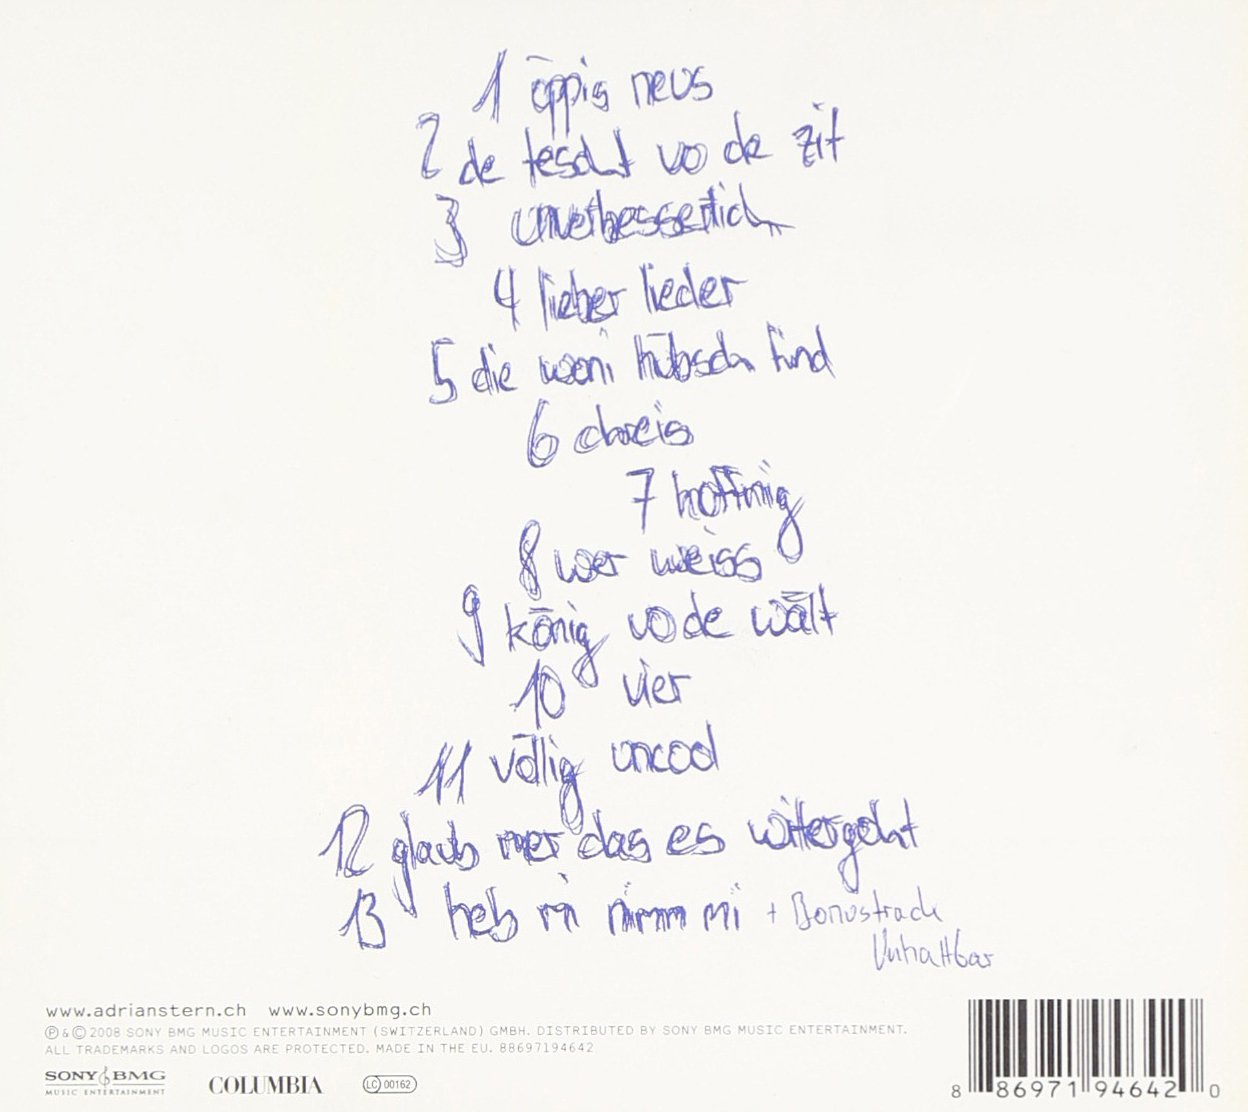 1 öppis neus
2 de tescht vo de zit
3 unverbesserlich
4 lieber lieder
5 die woni hübsch find
6 chreis
7 hoffnig
8 wer weiss
9 könig vo de wält
10 vier
11 völlig uncool
12 glaub mer das es witergoht
13 heb mi nimm mi + Bonustrack
Unhaltbar
www.adrianstern.ch www.sonybmg.ch
℗ & © 2008 SONY BMG MUSIC ENTERTAINMENT (SWITZERLAND) GMBH. DISTRIBUTED BY SONY BMG MUSIC ENTERTAINMENT.
ALL TRADEMARKS AND LOGOS ARE PROTECTED. MADE IN THE EU. 88697194642
SONY BMG
MUSIC ENTERTAINMENT
COLUMBIA
LC 00162
8 86971 94642 0